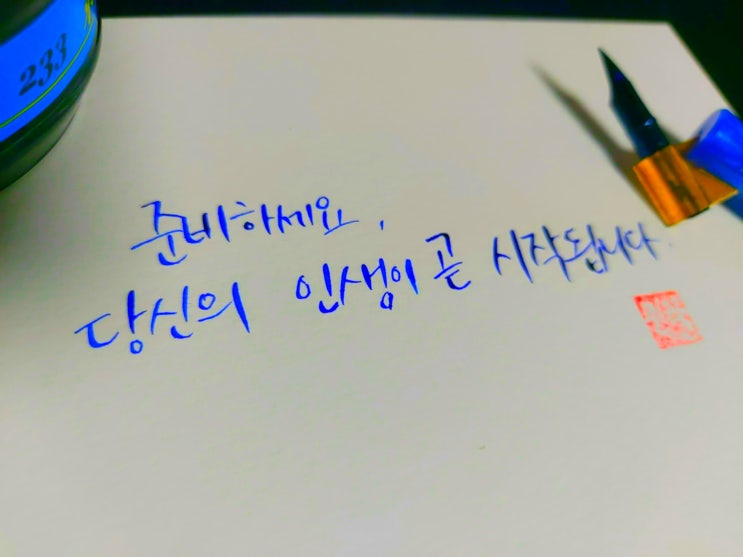 233
준비하세요,
당신의 인생이 곧 시작됩니다.